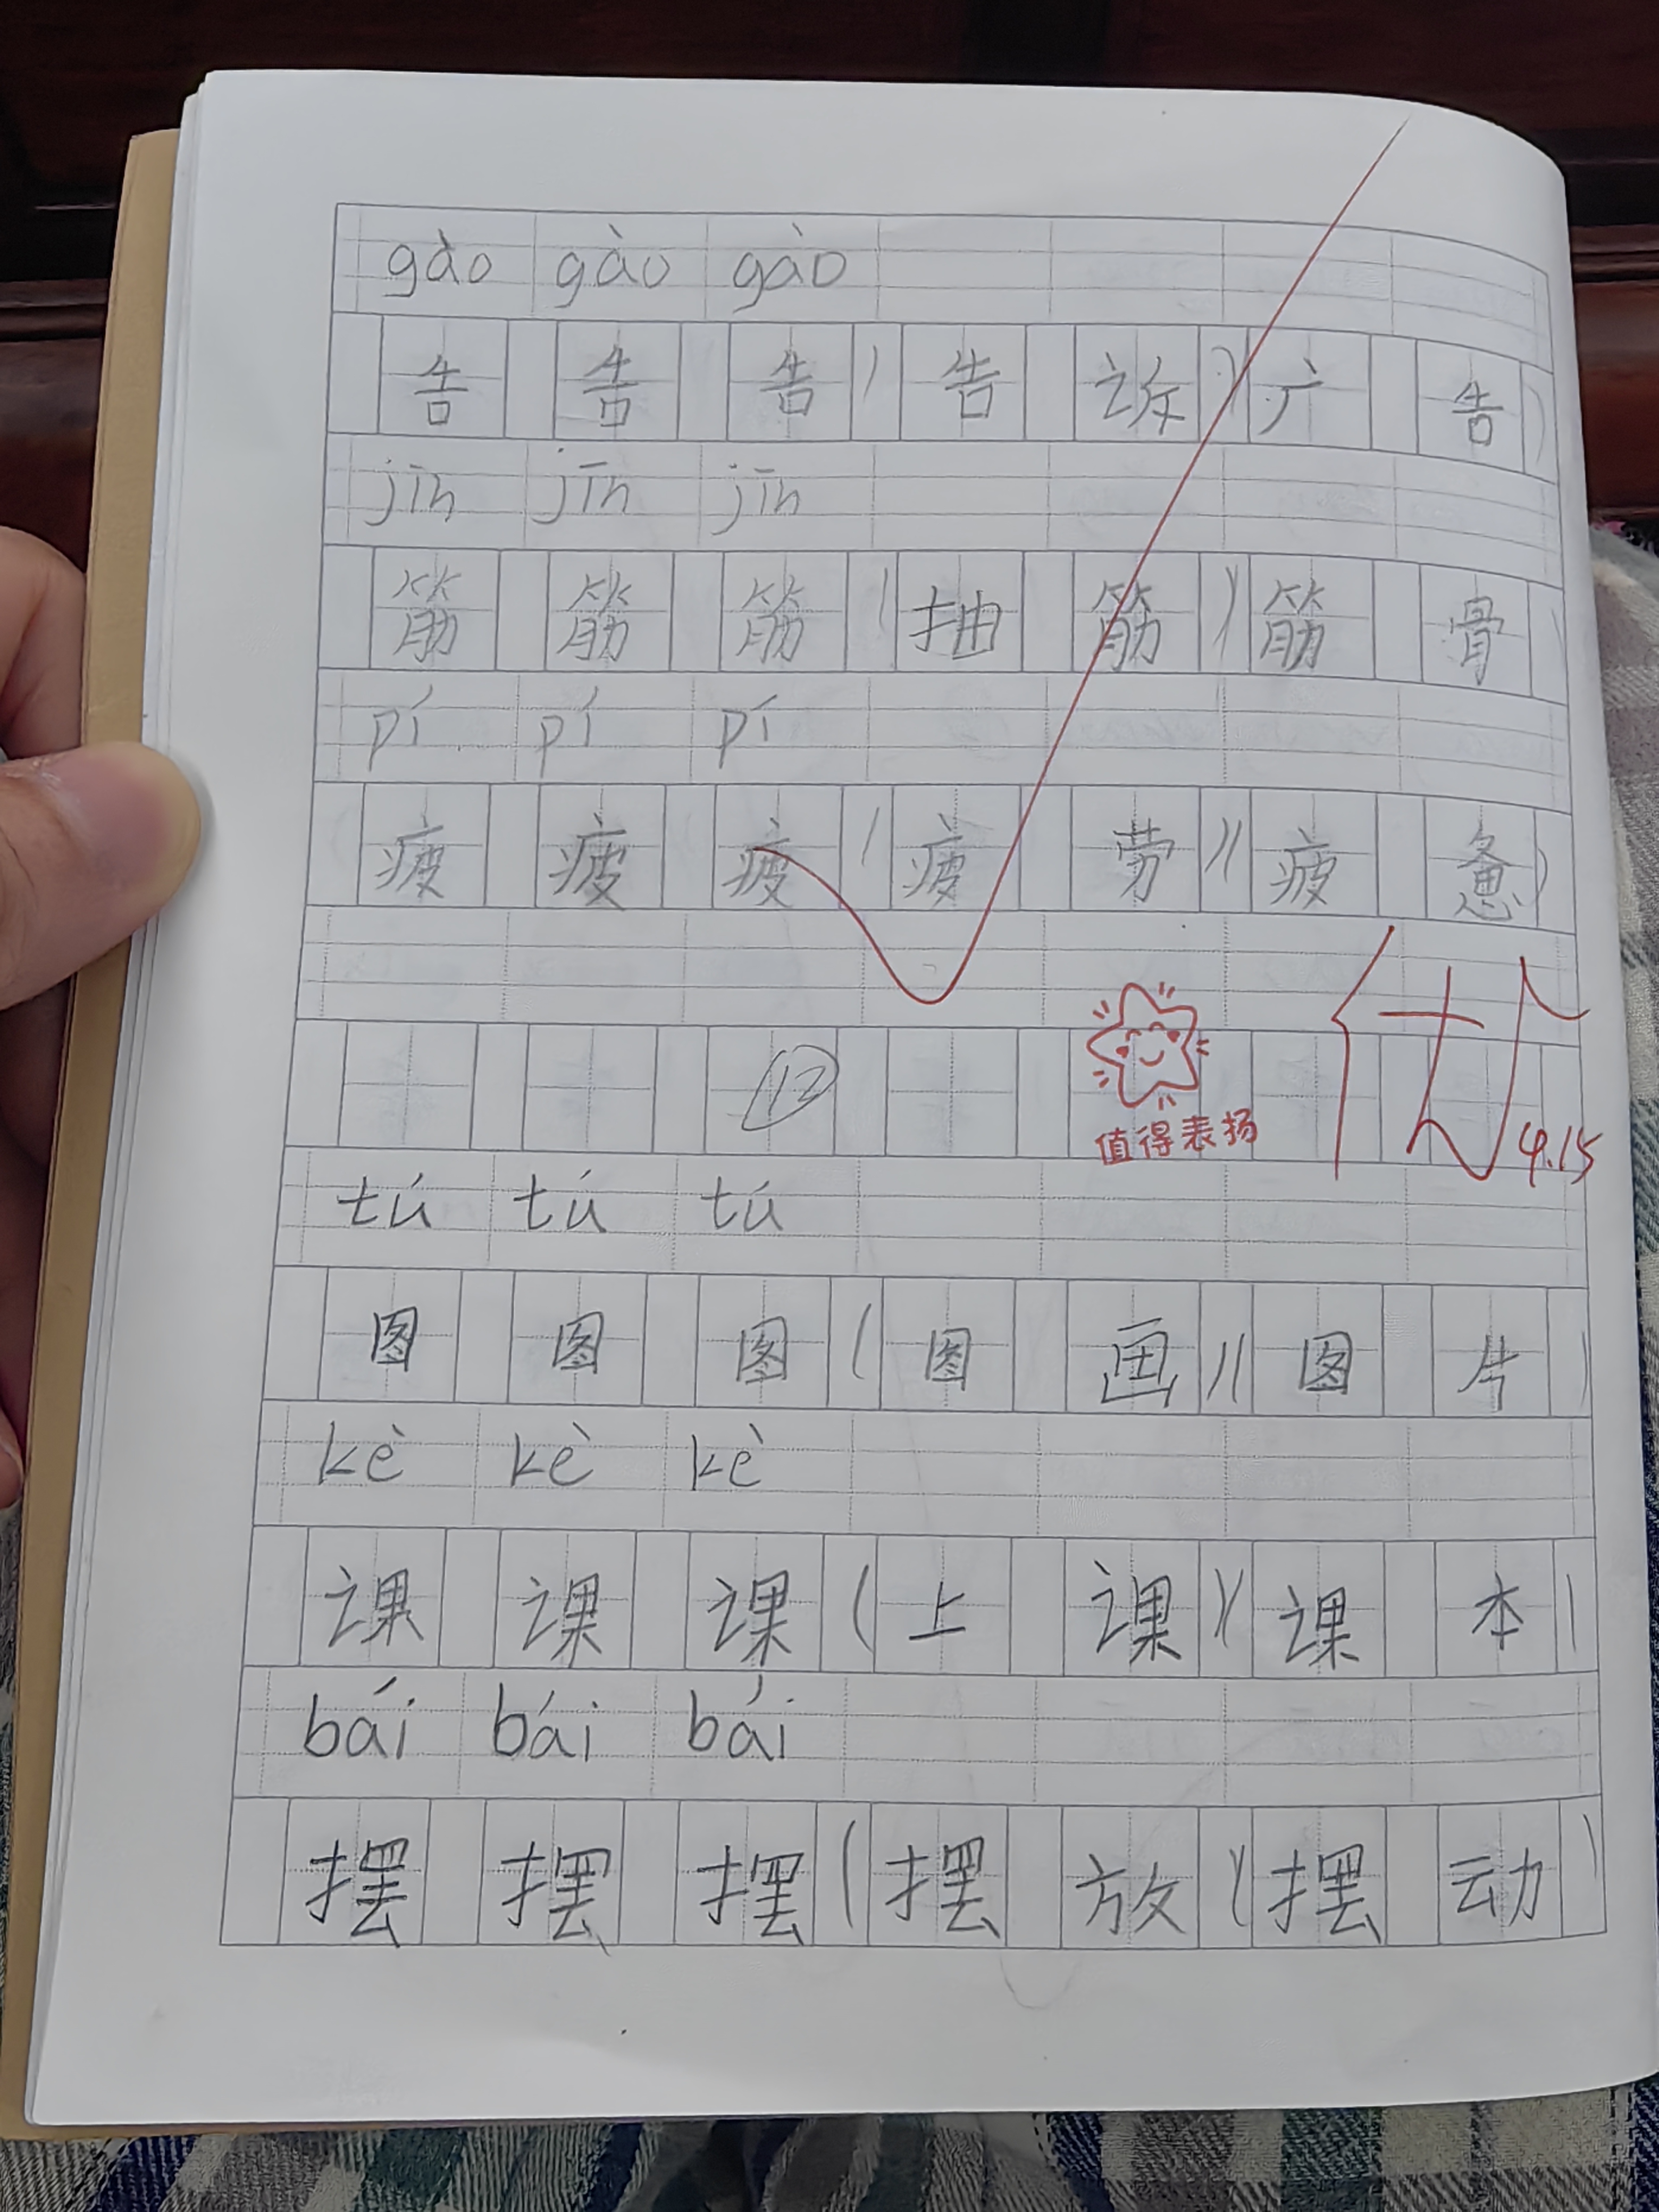 gào gào gào
告 告 告 ( 告 诉 ) ( 广 告 )
jīn jīn jīn
筋 筋 筋 ( 抽 筋 ) ( 筋 骨 )
pí pí pí
疲 疲 疲 ( 疲 劳 ) ( 疲 惫 )
⑫
值得表扬
优
4.15
tú tú tú
图 图 图 ( 图 画 ) ( 图 片 )
kè kè kè
课 课 课 ( 上 课 ) ( 课 本 )
bái bái bái
摆 摆 摆 ( 摆 放 ) ( 摆 动 )